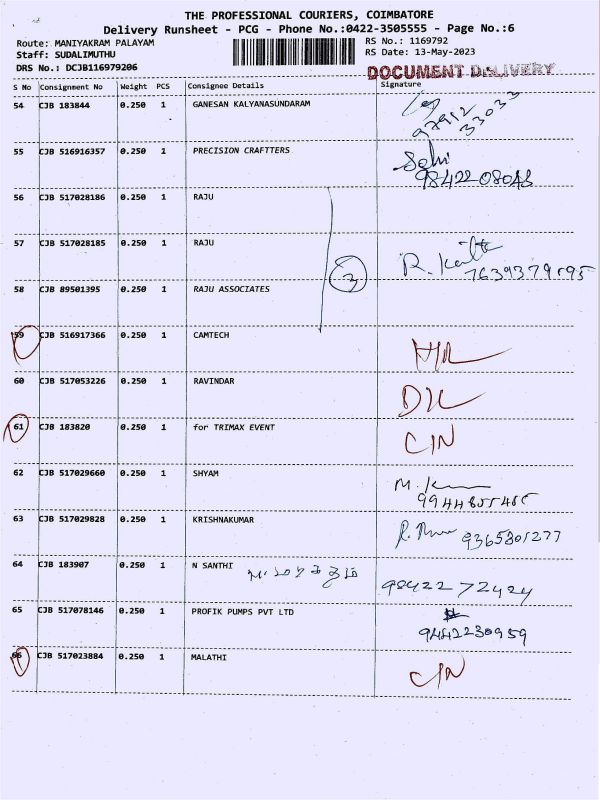 THE PROFESSIONAL COURIERS, COIMBATORE
Delivery Runsheet - PCG - Phone No.:0422-3505555 - Page No.:6
Route: MANIYAKRAM PALAYAM
RS No.: 1169792
Staff: SUDALIMUTHU
RS Date: 13-May-2023
DRS No.: DCJB116979206
DOCUMENT DELIVERY
S No Consignment No Weight PCS Consignee Details Signature
54 CJB 183844 0.250 1 GANESAN KALYANASUNDARAM
97912
33033
55 CJB 516916357 0.250 1 PRECISION CRAFTTERS
98422 08048
56 CJB 517028186 0.250 1 RAJU
57 CJB 517028185 0.250 1 RAJU
3
58 CJB 89501395 0.250 1 RAJU ASSOCIATES
59 CJB 516917366 0.250 1 CAMTECH
60 CJB 517053226 0.250 1 RAVINDAR
D/L
61 CJB 183820 0.250 1 for TRIMAX EVENT
C/N
62 CJB 517029660 0.250 1 SHYAM
63 CJB 517029828 0.250 1 KRISHNAKUMAR
9365301277
64 CJB 183907 0.250 1 N SANTHI
98422 72424
65 CJB 517078146 0.250 1 PROFIK PUMPS PVT LTD
9442230959
66 CJB 517023884 0.250 1 MALATHI
C/N